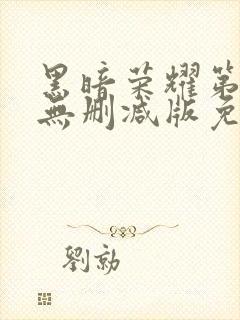 黑暗荣耀第
無删减版免
劉勍